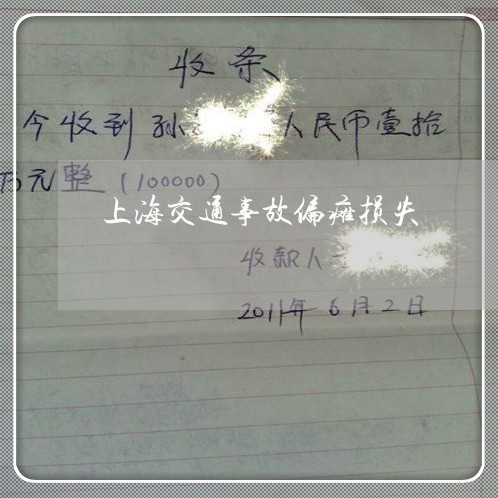 收条
今收到孙 人民币壹拾
万元整(100000)
上海交通事故偏瘫损失
收款人
2011年6月2日